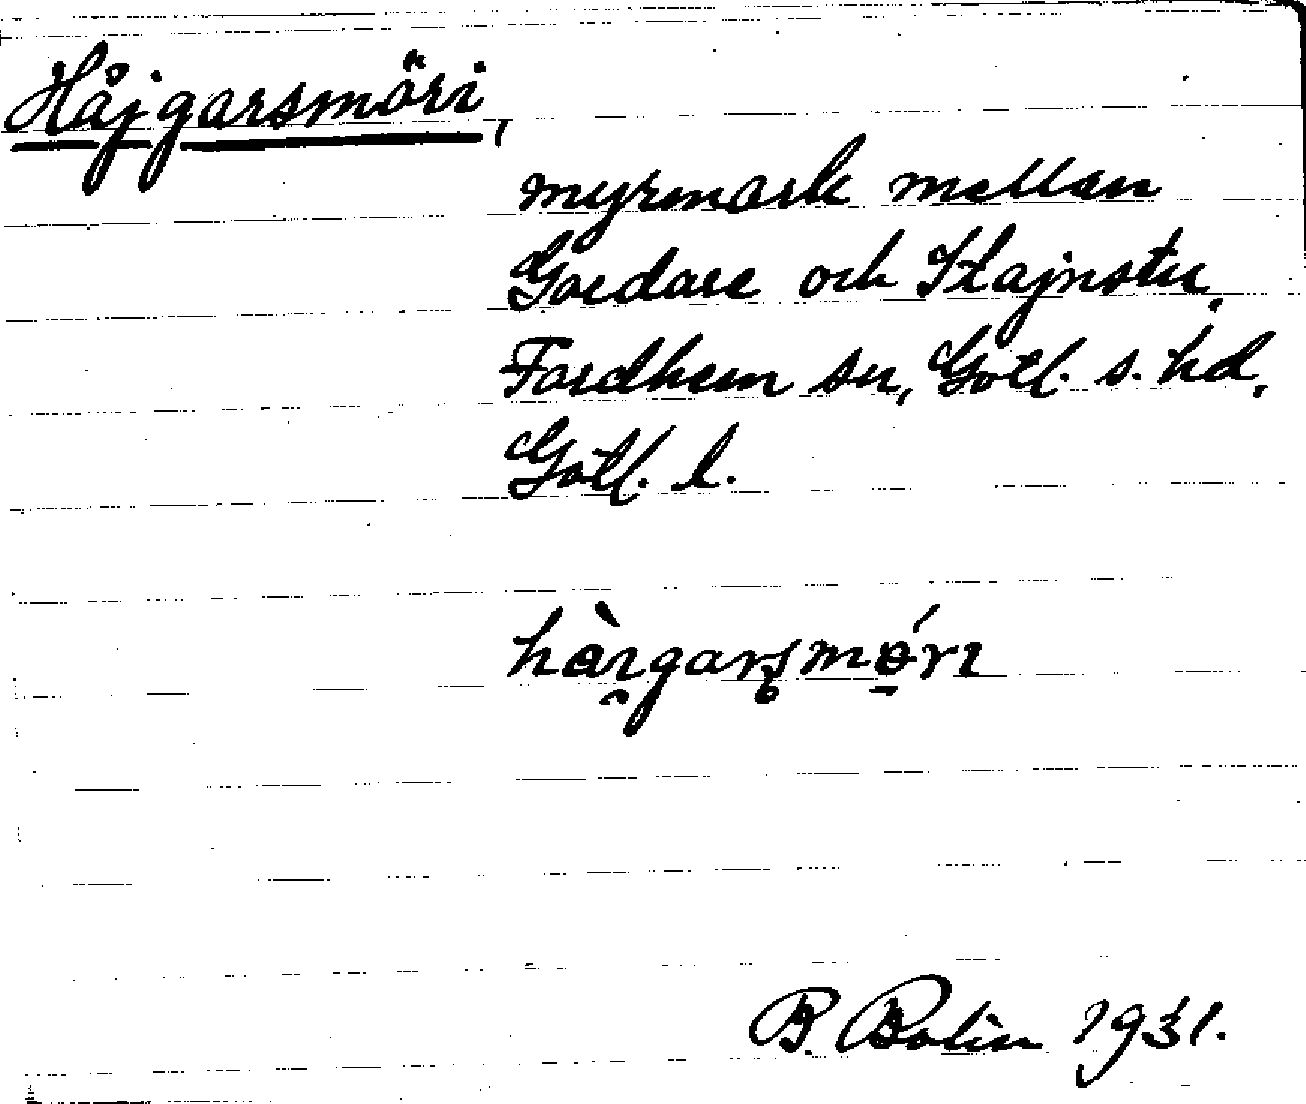 Håjgarsmöri,
myrmark mellan
Gardare och Stajnstu,
Fardhem sn, Gotl. s. hd,
Gotl. l.
B. Bolin 1931.